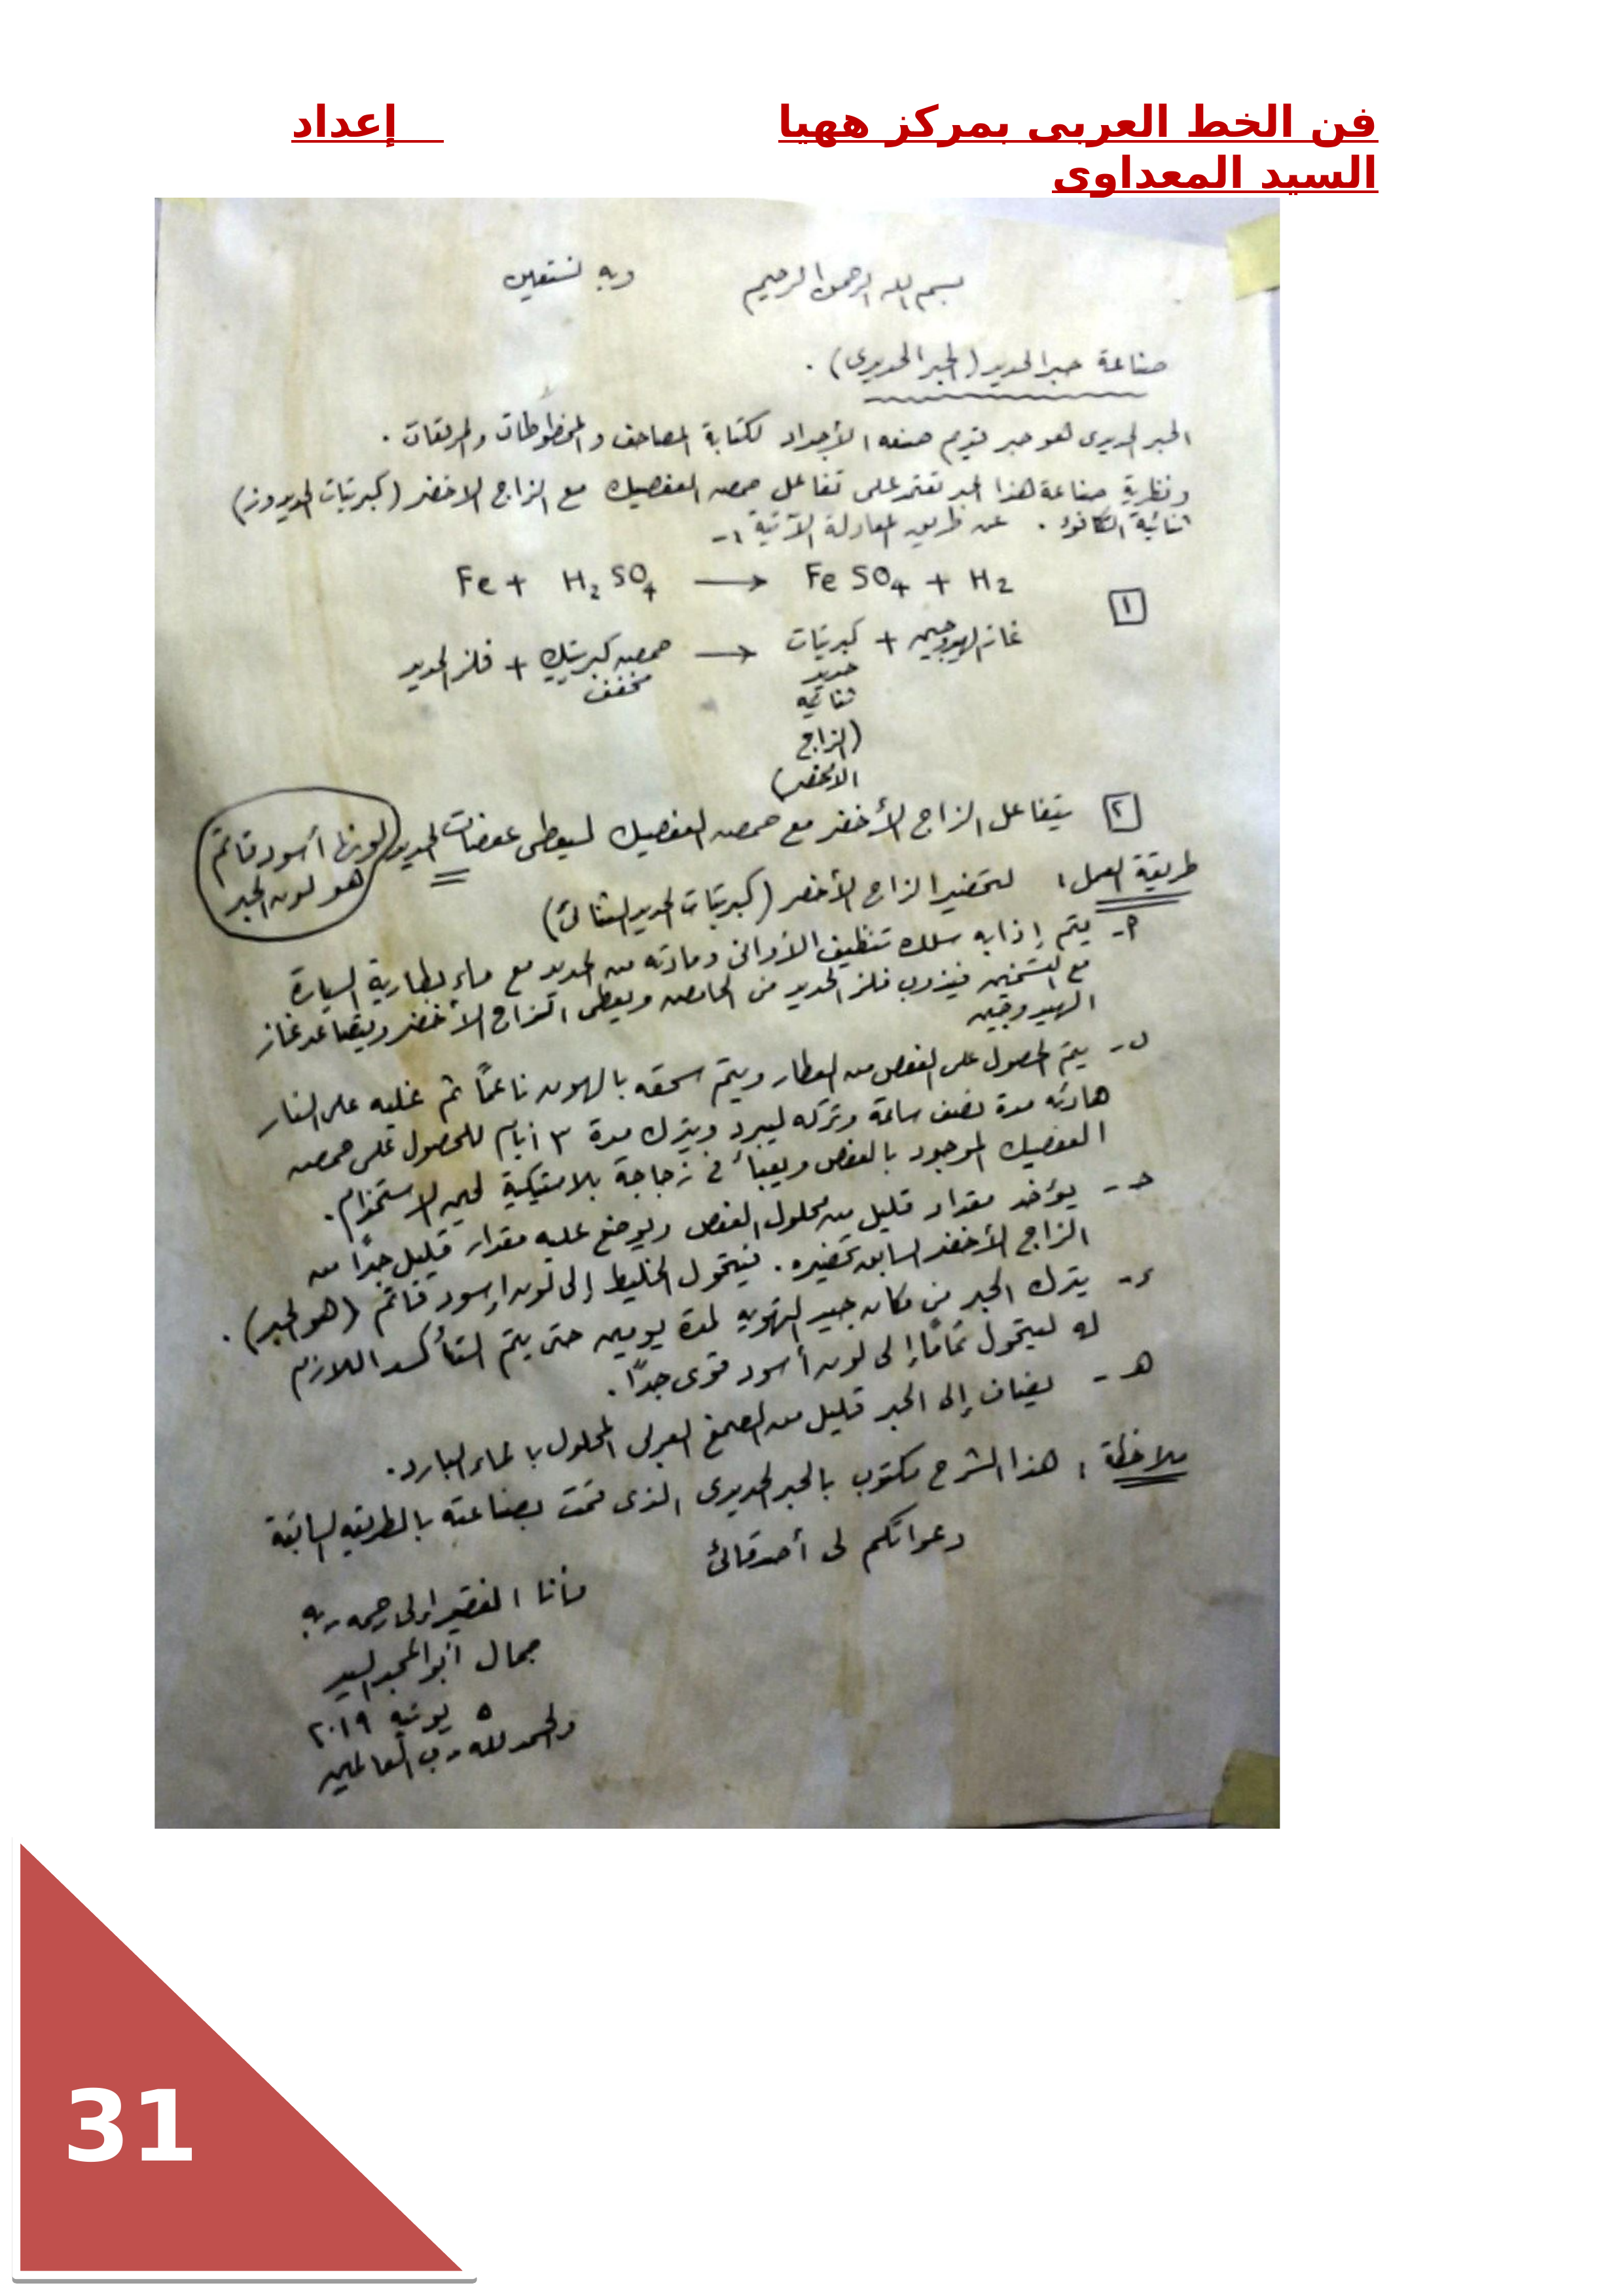 فن الخط العربى بمركز ههيا إعداد
السيد المعداوى
بسم الله الرحمن الرحيم وبه نستعين
صناعة حبر الحديد (الحبر الحديدى) .
الحبر الحديدى هو حبر قديم صنعه الأجداد لكتابة المصاحف والمخطوطات والمرقعات .
ونظرية صناعة هذا الحبر تعتمد على تفاعل حمض العفصيك مع الزاج الاخضر (كبريتات الحديدوز)
ثنائية التكافؤ . عن طريق المعادلة الآتية :-
Fe + H2SO4 → FeSO4 + H2
١
غاز الهيدروجين + كبريتات ← حمض كبريتيك + فلز الحديد
حديد مخفف
ثنائية
(الزاج
الأخضر)
٢ يتفاعل الزاج الأخضر مع حمض العفصيك ليعطى عفصات الحديد لونها أسود قاتم
هو لون الحبر
طريقة العمل : لتحضير الزاج الأخضر (كبريتات الحديد الثنائى)
أ - يتم إذابه سلك تنظيف الأوانى ومادته من الحديد مع ماء بطارية السيارة
مع التسخين فيذوب فلز الحديد فى الحامض ويعطى الزاج الأخضر ويتصاعد غاز
الهيدروجين
ب - يتم الحصول على العفص من العطار ويتم سحقه بالهون ناعماً ثم غليه على النار
هادئه مدة نصف ساعة وتركه ليبرد ويترك مدة ٣ أيام للحصول على حمض
العفصيك الموجود بالعفص ويعبأ فى زجاجة بلاستيكية لحين الاستخدام .
جـ - يؤخذ مقدار قليل من محلول العفص ويوضع عليه مقدار قليل جداً من
الزاج الأخضر السابق تحضيره . فيتحول الخليط إلى لون اسود قاتم (هو الحبر) .
د - يترك الحبر فى مكان جيد التهويه لمدة يومين حتى يتم التأكسد اللازم
له ليتحول تماماً إلى لون أسود قوى جداً .
هـ - يضاف إلى الحبر قليل من الصمغ العربى المحلول بالماء البارد .
ملاحظة : هذا الشرح مكتوب بالحبر الحديدى الذى قمت بصناعته بالطريقه السابقة
دعواتكم لى أصدقائى
فأنا الفقير إلى رحمه ربه
جمال أبو المجد السيد
٥ يونيه ٢٠١٩
والحمد لله رب العالمين
31